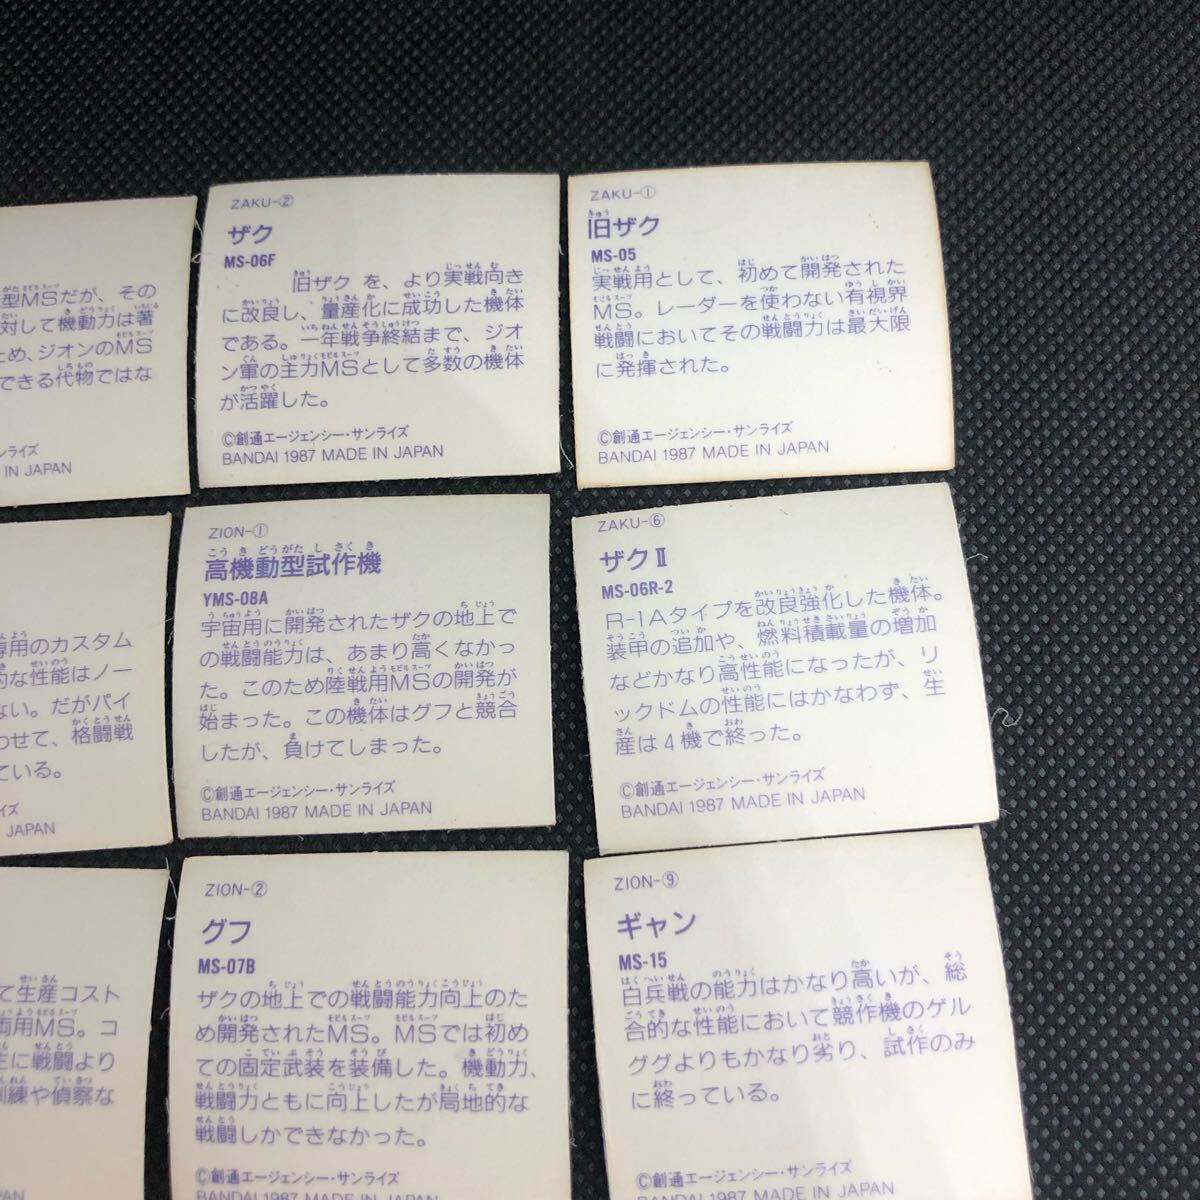 型MSだが、その
対して機動力は著
ため、ジオンのMS
できる代物ではな
ンライズ
IN JAPAN
ZAKU-②
ザク
MS-06F
旧ザク を、より実戦向き
に改良し、量産化に成功した機体
である。一年戦争終結まで、ジオ
ン軍の主力MSとして多数の機体
が活躍した。
©創通エージェンシー・サンライズ
BANDAI 1987 MADE IN JAPAN
ZAKU-①
旧ザク
MS-05
実戦用として、初めて開発された
MS。レーダーを使わない有視界
戦闘においてその戦闘力は最大限
に発揮された。
©創通エージェンシー・サンライズ
BANDAI 1987 MADE IN JAPAN
専用のカスタム
的な性能はノー
ない。だがパイ
わせて、格闘戦
ている。
イズ
JAPAN
ZION-①
高機動型試作機
YMS-08A
宇宙用に開発されたザクの地上で
の戦闘能力は、あまり高くなかっ
た。このため陸戦用MSの開発が
始まった。この機体はグフと競合
したが、負けてしまった。
©創通エージェンシー・サンライズ
BANDAI 1987 MADE IN JAPAN
ZAKU-⑥
ザクⅡ
MS-06R-2
R-1Aタイプを改良強化した機体。
装甲の追加や、燃料積載量の増加
などかなり高性能になったが、リ
ックドムの性能にはかなわず、生
産は4機で終った。
©創通エージェンシー・サンライズ
BANDAI 1987 MADE IN JAPAN
て生産コスト
両用MS。コ
主に戦闘より
訓練や偵察な
JAPAN
ZION-②
グフ
MS-07B
ザクの地上での戦闘能力向上のた
め開発されたMS。MSでは初め
ての固定武装を装備した。機動力、
戦闘力ともに向上したが局地的な
戦闘しかできなかった。
©創通エージェンシー・サンライズ
BANDAI 1987 MADE IN JAPAN
ZION-⑨
ギャン
MS-15
白兵戦の能力はかなり高いが、総
合的な性能において競作機のゲル
ググよりもかなり劣り、試作のみ
に終っている。
©創通エージェンシー・サンライズ
BANDAI 1987 MADE IN JAPAN